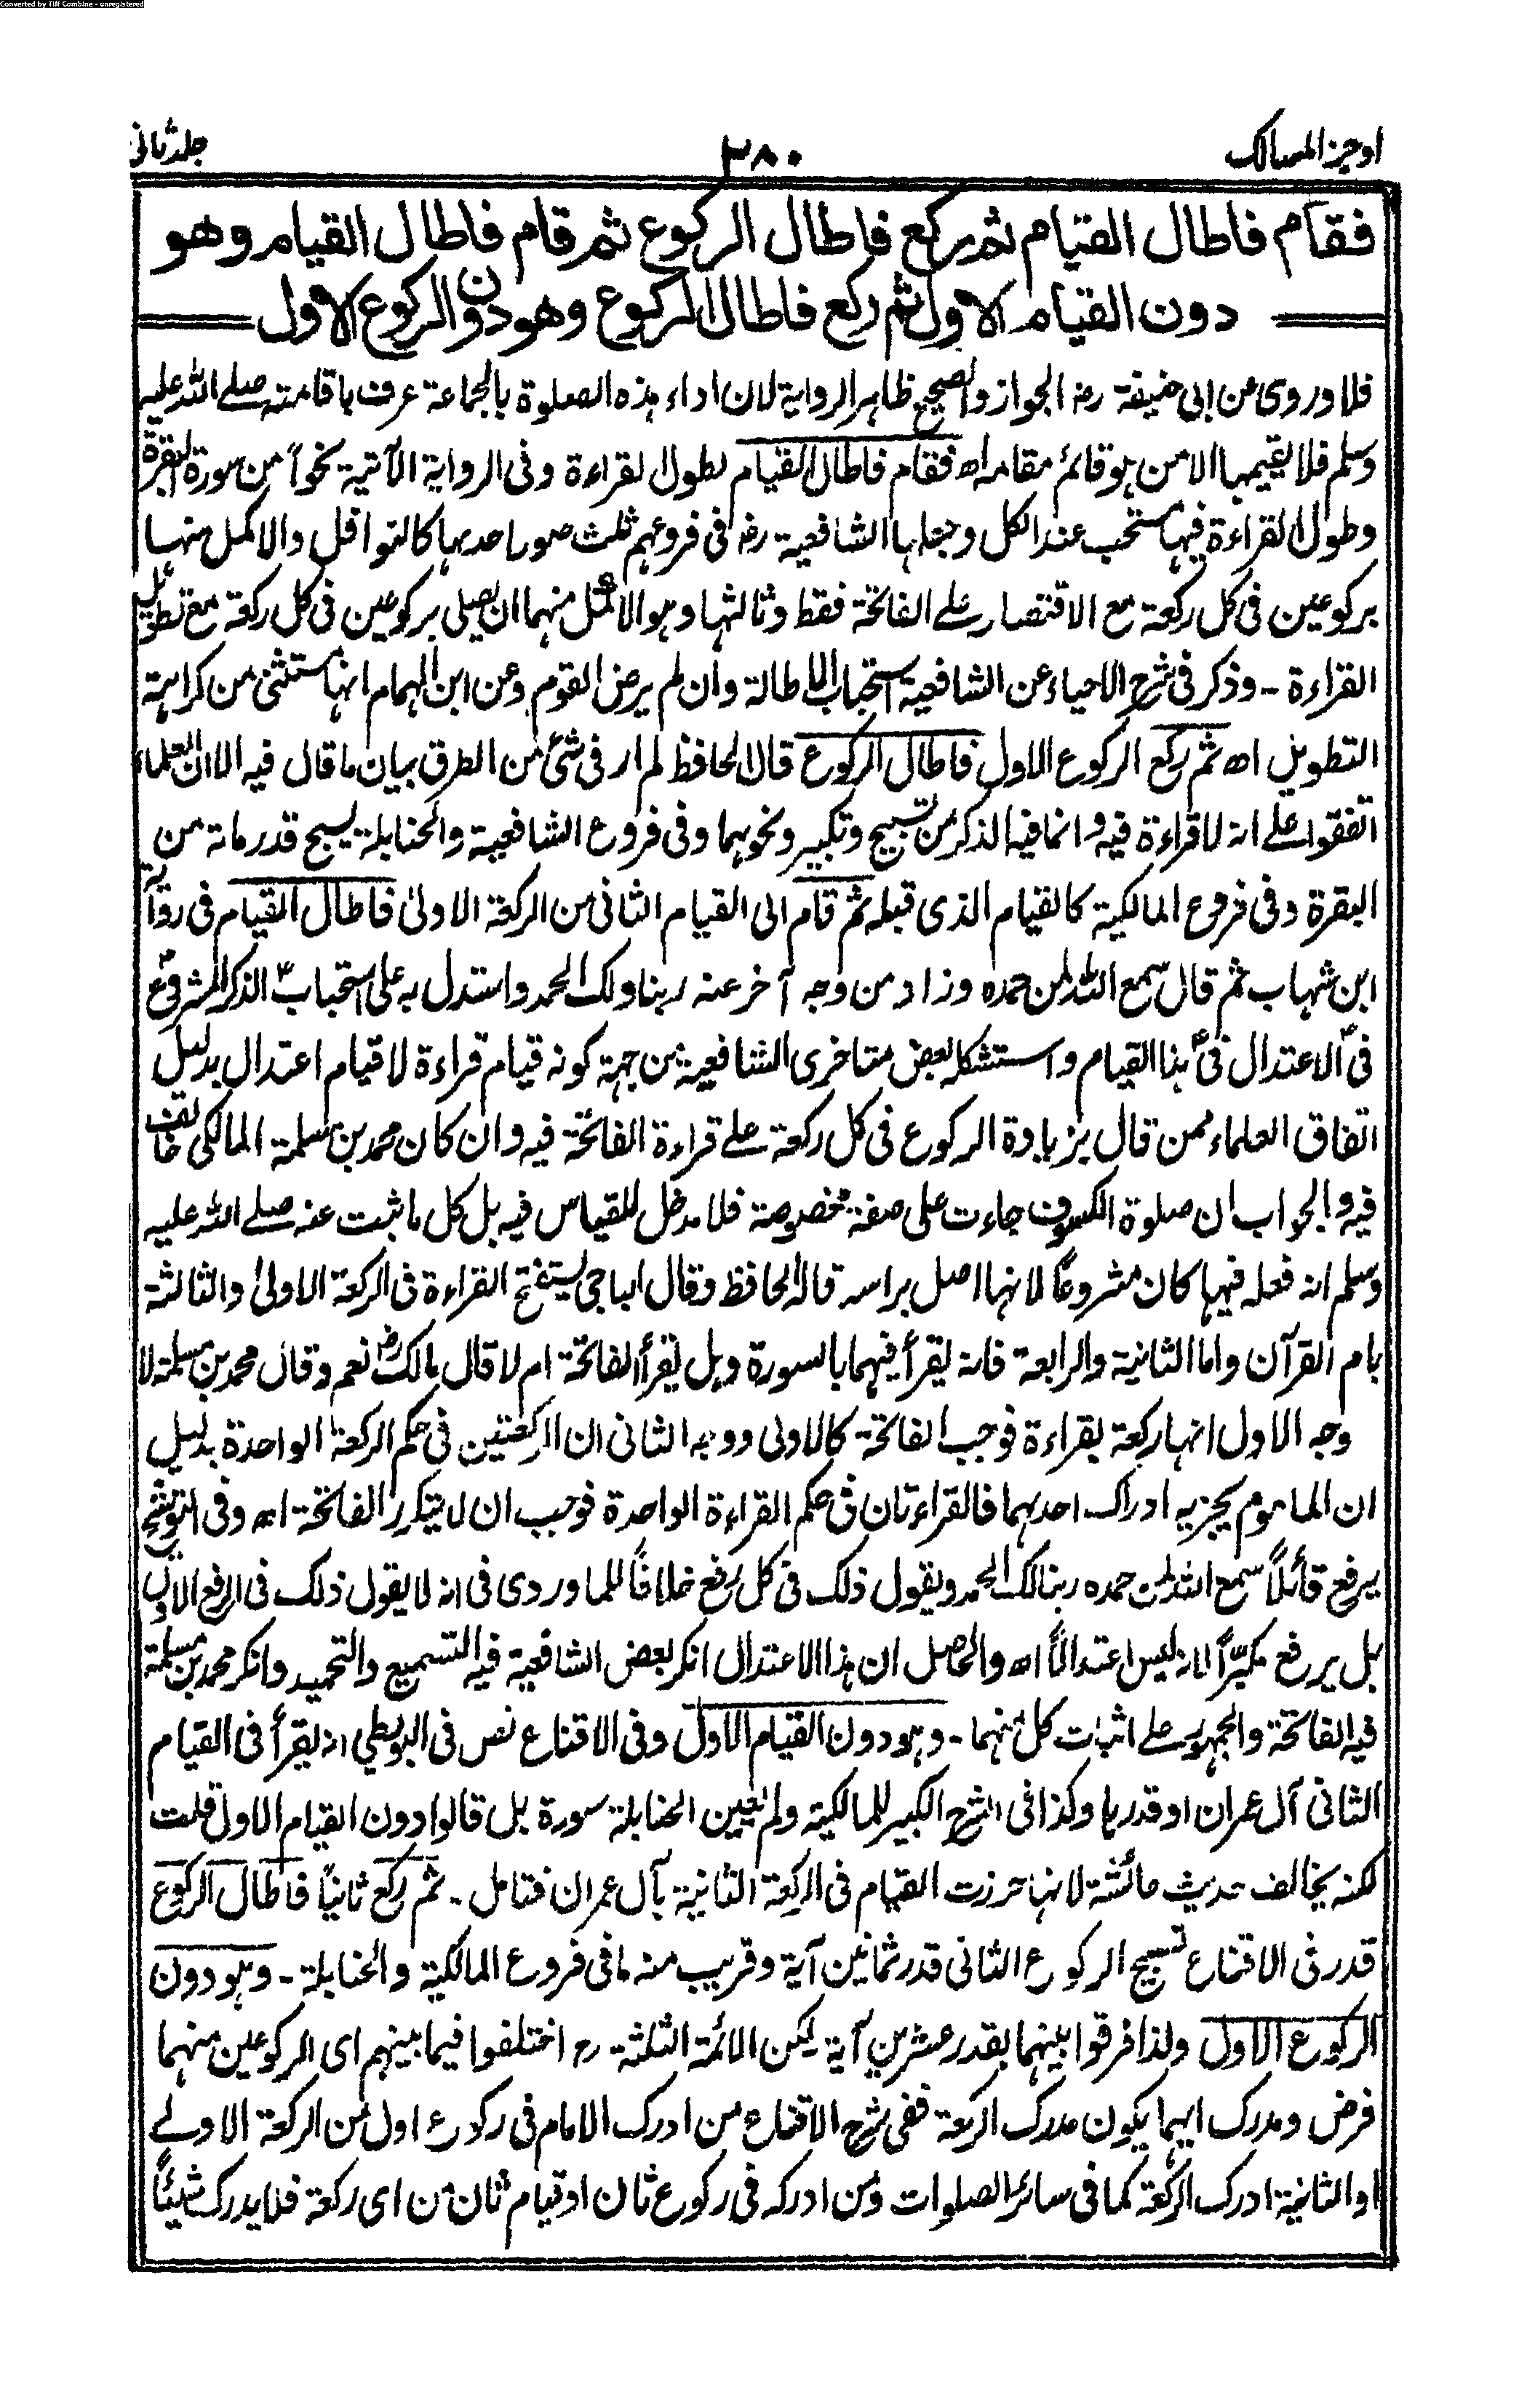 Converted by Tiff Combine - unregistered
اوجز المسالك ٢٨٠ جلد ثانی
فقام فاطال القيام ثم ركع فاطال الركوع ثم قام فاطال القيام وهو
دون القيام الاول ثم ركع فاطال الركوع وهو دون الركوع الاول
فلا وروى عن ابى حنيفة رض الجواز والصحيح ظاهر الرواية لان اداء هذه الصلوة بالجماعة عرف باقامته صلے الله عليه
وسلم فلا يقيمها الا من هو قائم مقامه اه فقام فاطال القيام لطول القراءة وفى الرواية الآتية نحواً من سورة البقرة
وطول القراءة فيها مستحب عند الكل وجعلها الشافعية رض فى فروعهم ثلث صور احدها كالنوافل والاكمل منها
بركوعين فى كل ركعة مع الاقتصار علے الفاتحة فقط وثالثها وهو الاكمل منهما ان يصلى بركوعين فى كل ركعة مع تطويل
القراءة - وذكر فى شرح الاحياء عن الشافعية استحباب الاطالة وان لم يرض القوم وعن ابن الهمام انها مستثنى من كراهة
التطويل اه ثم ركع الركوع الاول فاطال الركوع قال الحافظ لم ار فى شئ من الطرق بيان ما قال فيه الا ان العلماء
اتفقوا علے انه لا قراءة فيه وانما فيه الذكر من تسبيح وتكبير ونحوهما وفى فروع الشافعية والحنابلة يسبح قدر مائة من
البقرة وفى فروع المالكية كالقيام الذى قبله ثم قام الى القيام الثانى من الركعة الاولىٰ فاطال القيام فى رواية
ابن شهاب ثم قال سمع الله لمن حمده وزاد من وجه آخر عنه ربنا ولك الحمد واستدل به على استحباب الذكر المشروع
فى الاعتدال فى هذا القيام واستشكله بعض متاخرى الشافعية من جهة كونه قيام قراءة لا قيام اعتدال بدليل
اتفاق العلماء ممن قال بزيادة الركوع فى كل ركعة علے قراءة الفاتحة فيه وان كان محمد بن مسلمة المالكى خالف
فيه والجواب ان صلوة الكسوف جاءت على صفة مخصوصة فلا مدخل للقياس فيه بل كل ما ثبت عنه صلے الله عليه
وسلم انه فعله فيها كان مشروعاً لانها اصل براسه قاله الحافظ وقال الباجى يستفتح القراءة فى الركعة الاولىٰ والثالثة
بام القرآن واما الثانية والرابعة فانه يقرأ فيهما بالسورة وهل يقرأ الفاتحة ام لا قال مالك رض نعم وقال محمد بن مسلمة لا
وجه الاول انها ركعة بقراءة فوجب الفاتحة كالاولى ووجه الثانى ان الركعتين فى حكم الركعة الواحدة بدليل
ان الماموم يجزيه ادراك احدهما فالقراءتان فى حكم القراءة الواحدة فوجب ان لا يتكرر الفاتحة اه وفى التوشيح
يرفع قائلاً سمع الله لمن حمده ربنا لك الحمد ويقول ذلك فى كل رفع خلافاً للماوردى فى انه لا يقول ذلك فى الرفع الاول
بل يرفع مكبّراً لانه ليس اعتدالاً اه والحاصل ان هذا الاعتدال انكر بعض الشافعية فيه التسميع والتحميد وانكر محمد بن مسلمة
فيه الفاتحة والجمهور علے اثبات كل منهما - وهو دون القيام الاول وفى الاقناع نص فى البويطى انه يقرأ فى القيام
الثانى آل عمران او قدرها وكذا فى الشرح الكبير للمالكية ولم يعين الحنابلة سورة بل قالوا دون القيام الاول قلت
لكنه يخالف حديث عائشة لانها حرزت القيام فى الركعة الثانية بآل عمران فتامل - ثم ركع ثانياً فاطال الركوع
قدر فى الاقناع تسبيح الركوع الثانى قدر ثمانين آية وقريب منه ما فى فروع المالكية والحنابلة - وهو دون
الركوع الاول ولذا فرقوا بينهما بقدر عشرين آية لكن الائمة الثلثة رح اختلفوا فيما بينهم اى الركوعين منهما
فرض ومدرك ايهما يكون مدرك الركعة ففى شرح الاقناع من ادرك الامام فى ركوع اول من الركعة الاولے
او الثانية ادرك الركعة كما فى سائر الصلوات ومن ادركه فى ركوع ثان او قيام ثان من اى ركعة فلا يدرك شيئاً